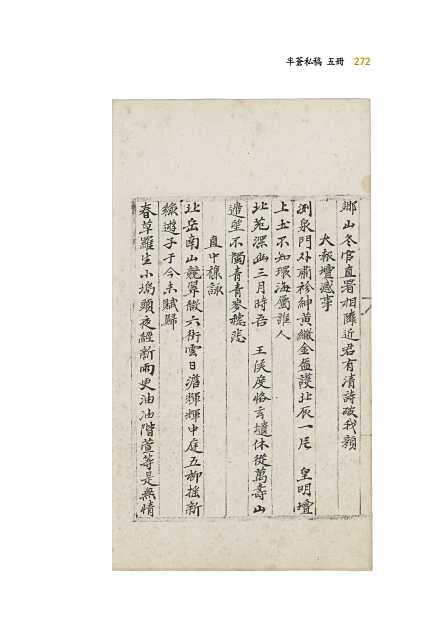 半蒼私稿 五冊 272
鄕山冬官直署相隣近君有淸詩破我顏
大報壇感事
洌泉門外肅衫紳黃繖金盤護北辰一尺 皇明壇
上土不知環海屬誰人
北苑深幽三月時吾 王侯度恪玄壇休從萬壽山
遙望不獨靑靑麥穗悲
直中襍詠
北岳南山競翠微六街雲日澹輝輝中庭五柳搖新
綠遊子于今未賦歸
春草羅生小塢頭夜經新雨更油油階萱等是無情